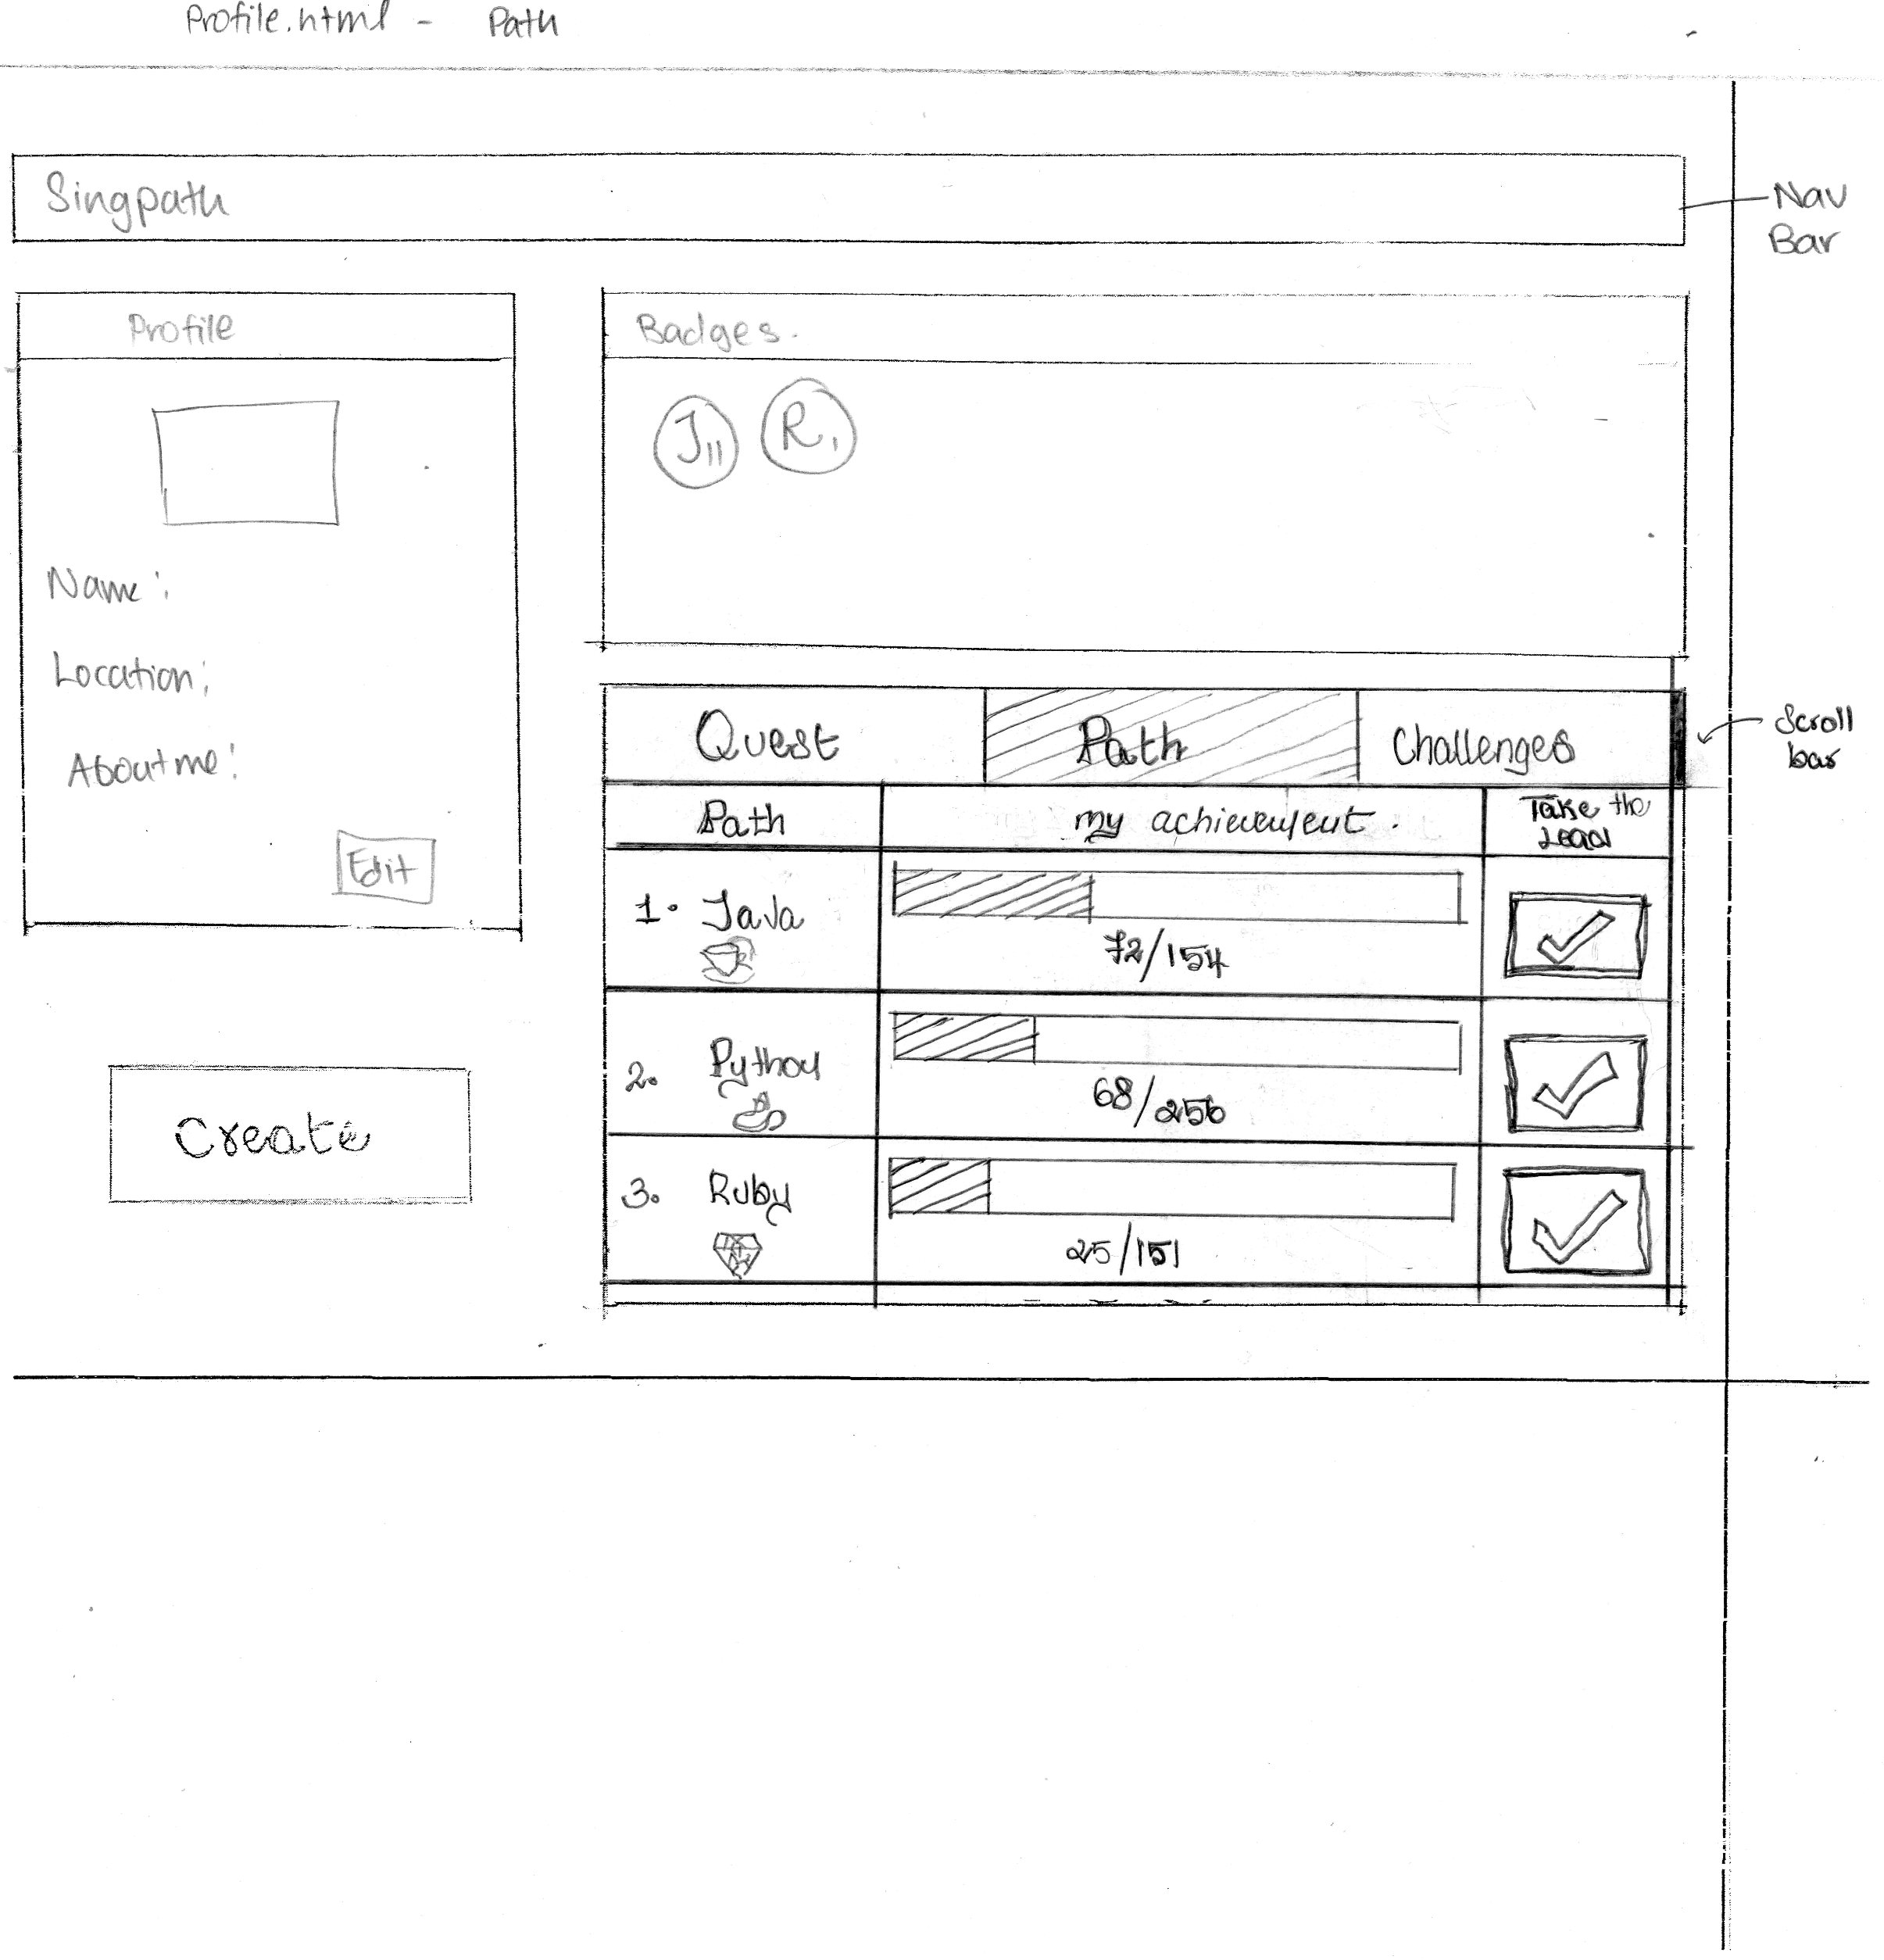 Profile.html - Path
Singpath
Nav
Bar
Profile
Name:
Location:
About me:
Edit
Create
Badges.
J11
R1
Quest
Path
Challenges
Scroll
bar
Path
my achievement.
Take the
Lead
1. Java
72/154
2. Python
68/256
3. Ruby
25/151